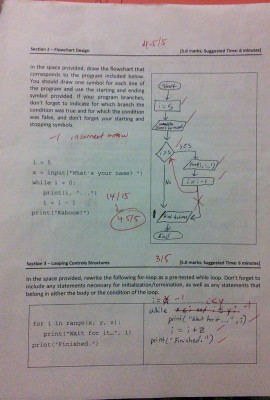 4.5/5
Section 2 – Flowchart Design [5.0 marks; Suggested Time: 6 minutes]
In the space provided, draw the flowchart that
corresponds to the program included below.
You should draw one symbol for each line of
the program and use the appropriate starting
symbol provided. If your program branches,
don't forget to indicate for which branch the
condition was true and for which the condition
was false, and don't forget your starting and
stopping symbols.
-1 incorrect arrow
i = 5
x = input("What's your name? ")
while i > 0:
print(i, "...")
i = i - 1
print("Kaboom!")
14/15
4.5/5
Start
i = 5
i > 0
YES
No
i = i - 1
End
3/5
Section 3 – Looping Controls Structures [5.0 marks; Suggested Time: 6 minutes]
In the space provided, rewrite the following for-loop as a pre-tested while loop. Don't forget to
include any statements necessary for initialization/termination, as well as any statements that
belong in either the body or the condition of the loop.
for i in range(x, y, z):
print("Wait for it…", i)
print("Finished.")
i = x -1
i<y
while
print("Wait for it...", i)
i = i + z
print("Finished.")